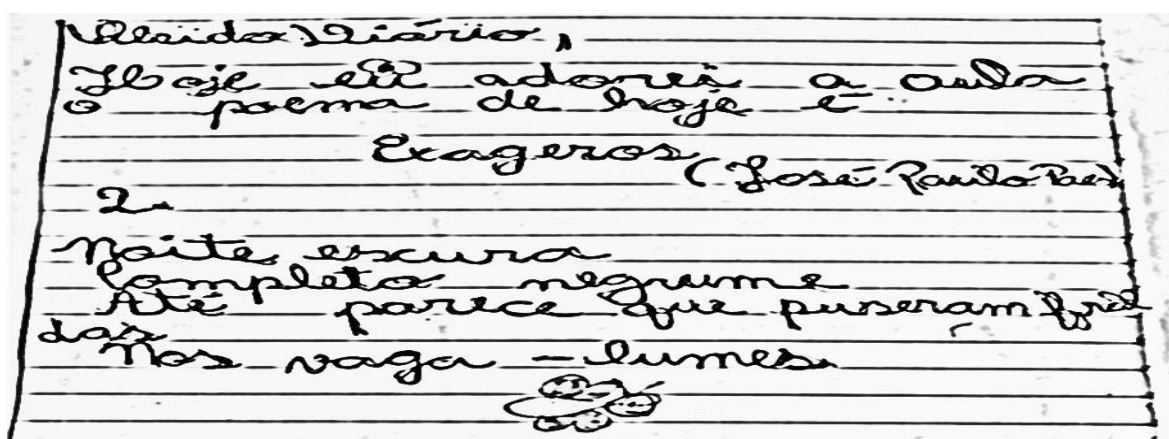 Querido Diário,
Hoje eu adorei a aula
o poema de hoje é
Exageros
(José Paulo Paes)
2.
Noite escura
Completo negrume
Até parece que puseram
das
Nos vaga-lumes.